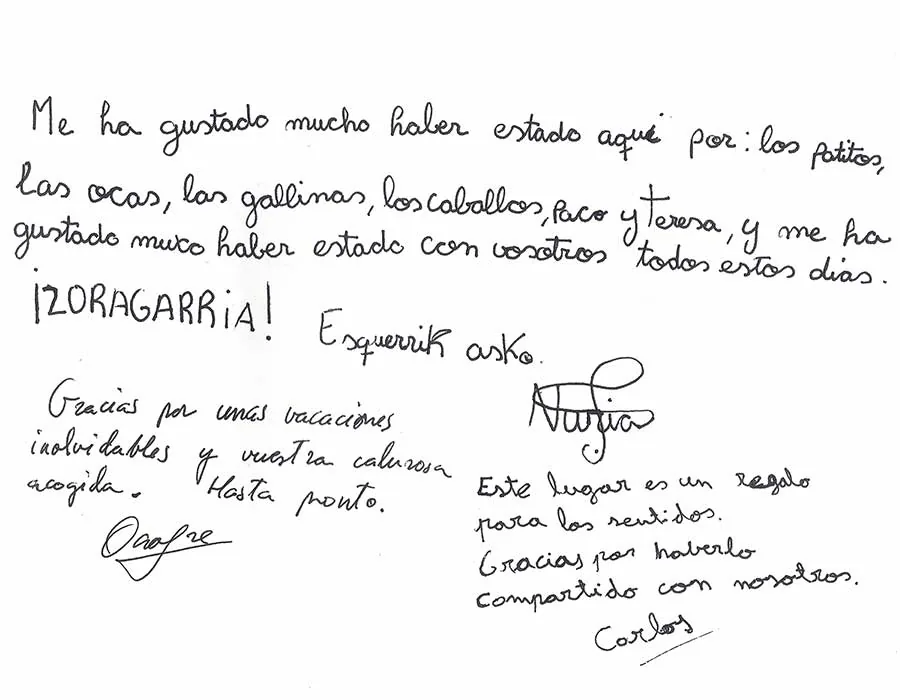 Me ha gustado mucho haber estado aquí por: los patitos,
las ocas, las gallinas, los caballos, Paco y Teresa, y me ha
gustado muxo haber estado con vosotros todos estos dias.
¡ZORAGARRiA!
Esquerrik asko.
Gracias por unas vacaciones
inolvidables y vuestra calurosa
acogida. Hasta pronto.
Onofre
Este lugar es un regalo
para los sentidos.
Gracias por haberlo
compartido con nosotros.
Carlos